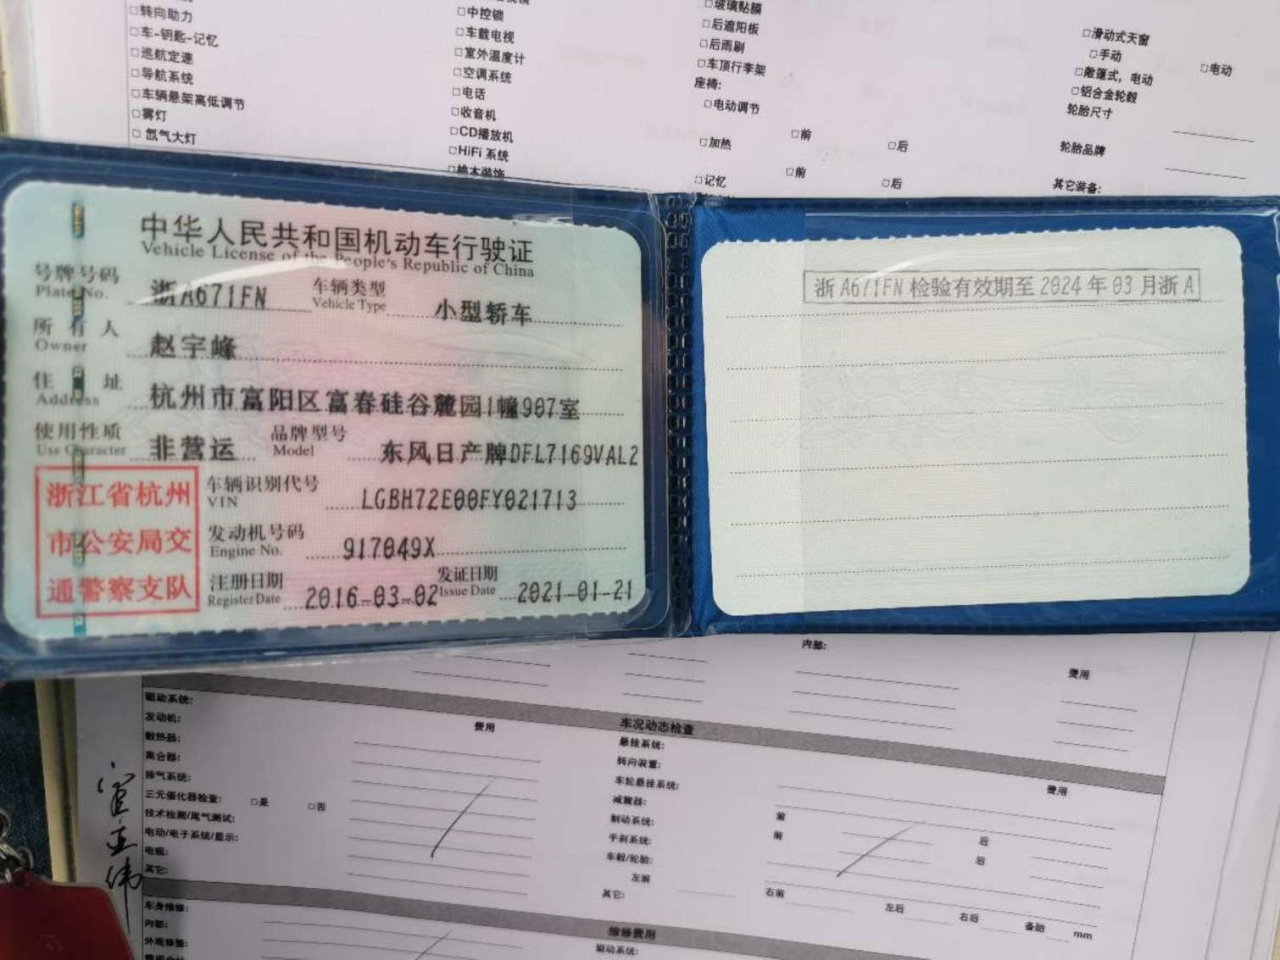 □转向助力
□车-钥匙-记忆
□巡航定速
□导航系统
□车辆悬架高低调节
□雾灯
□氙气大灯
□中控锁
□车载电视
□室外温度计
□空调系统
□电话
□收音机
□CD播放机
□HiFi 系统
□桃木装饰
□玻璃贴膜
□后遮阳板
□后雨刷
□车顶行李架
座椅:
□电动调节
□加热 □前 □后
□记忆 □前 □后
□滑动式天窗
□手动 □电动
□敞篷式，电动
□铝合金轮毂
轮胎尺寸
轮胎品牌
其它装备:
中华人民共和国机动车行驶证
Vehicle License of the People's Republic of China
号牌号码 浙A671FN 车辆类型 小型轿车
Plate No. Vehicle Type
所有人 赵宇峰
Owner
住址 杭州市富阳区富春硅谷麓园1幢907室
Address
使用性质 非营运 品牌型号 东风日产牌DFL7169VAL2
Use Character Model
浙江省杭州
市公安局交
通警察支队
车辆识别代号 LGBH72E00FY021713
VIN
发动机号码 917049X
Engine No.
注册日期 2016-03-02 发证日期 2021-01-21
Register Date Issue Date
浙A671FN检验有效期至2024年03月浙A
内部:
费用
驱动系统:
发动机: 费用
散热器:
离合器:
排气系统:
三元催化器检查: □是 □否
技术检测/尾气测试:
电动/电子系统/显示:
电瓶:
其它:
车况动态检查
悬挂系统:
转向装置: 费用
车轮悬挂系统:
减震器: 前 后
制动系统: 前 后
手刹系统:
车毂/轮胎:
左前 右前 左后 右后 备胎 mm
其它:
车身维修:
内部:
外观修整:
维修费用
驱动系统: